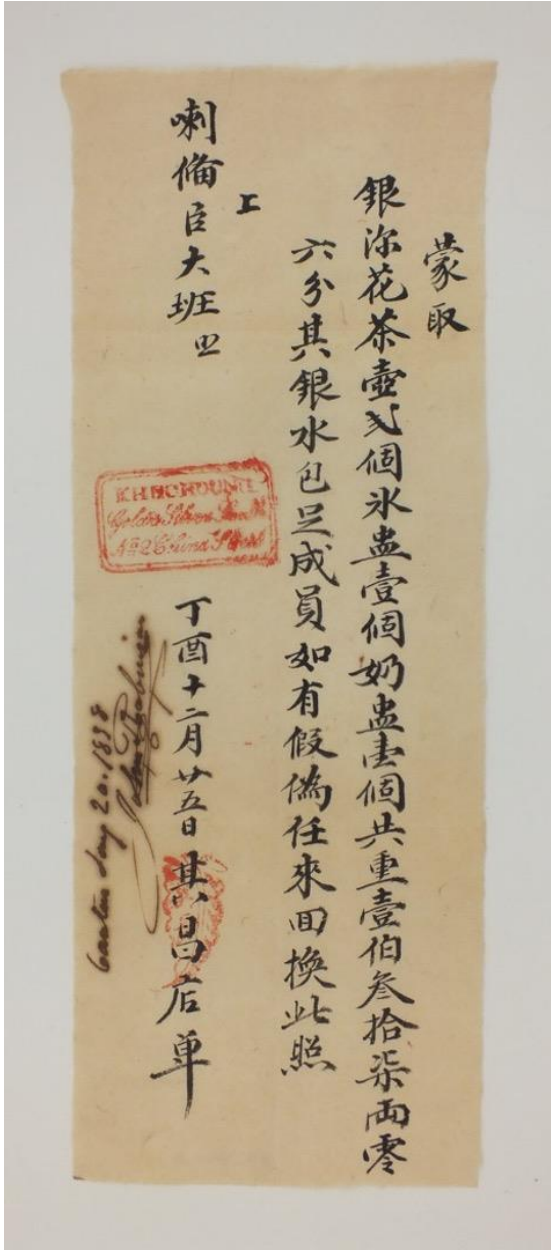 蒙取
銀深花茶壺弍個氷盅壹個奶盅壹個共重壹伯叁拾柒両零
六分其銀水包足成員如有假偽任來回換此照
上
喇俻臣大班
KHECHEONG
Gold & Silver Smith
No 2 China Street
丁酉十二月廿五日其昌店单
John Robinson
Canton Jany 20. 1838